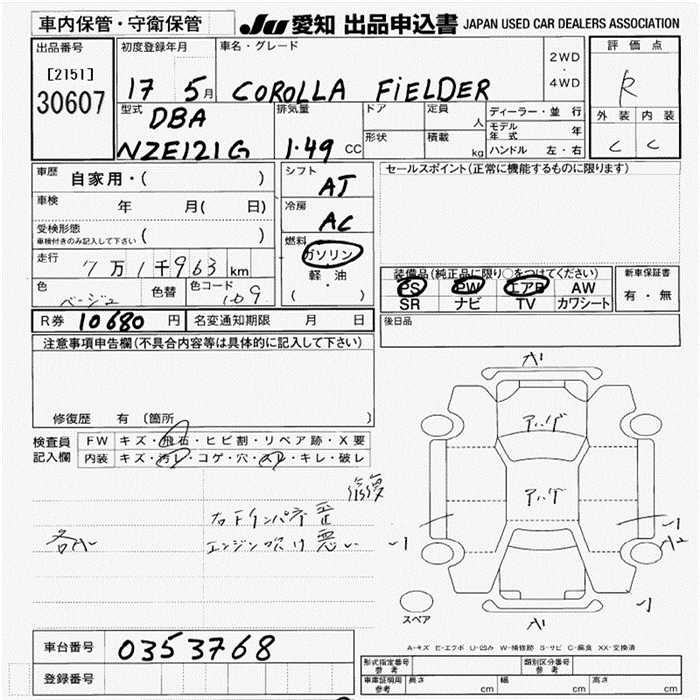 車内保管・守衛保管
JU 愛知 出品申込書 JAPAN USED CAR DEALERS ASSOCIATION
出品番号
[2151]
30607
初度登録年月
17 5月
車名・グレード
COROLLA FiELDER
2WD
・
4WD
評価点
R
外装 内装
C C
型式
DBA
NZE121G
排気量
1.49 CC
ドア
形状
定員 人
積載 kg
ディーラー・並行
モデル年式 年
ハンドル 左・右
車歴 自家用・( )
車検 年 月( 日)
受検形態
車検付きのみ記入して下さい ( )
走行 7万1千963km
色 ベージュ 色替 色コード 1.09
シフト
AT
冷房
AC
燃料
ガソリン
軽・油
( )
セールスポイント(正常に機能するものに限ります)
装備品(純正品に限り○をつけてください)
PS PW エアB AW
SR ナビ TV カワシート
新車保証書
有・無
R券 10680円 名変通知期限 月 日
後日品
注意事項申告欄(不具合内容等は具体的に記入して下さい)
修復歴 有(箇所 )
検査員記入欄
FW キズ・飛石・ヒビ割・リペア跡・X要
内装 キズ・汚レ・コゲ・穴・スレ・キレ・破レ
修復
右下インパネ歪
各小 エンジン吹け悪い
A1
アハゲ
アハゲ
-1
-1
A2
-1
スペア
A1
A-キズ E-エクボ U-凹み W-補修跡 S-サビ C-腐食 XX-交換済
車台番号 0353768
登録番号
形式指定番号 参考
類別区分番号 参考
車庫証明用 参考 長さ cm 幅 cm 高さ cm